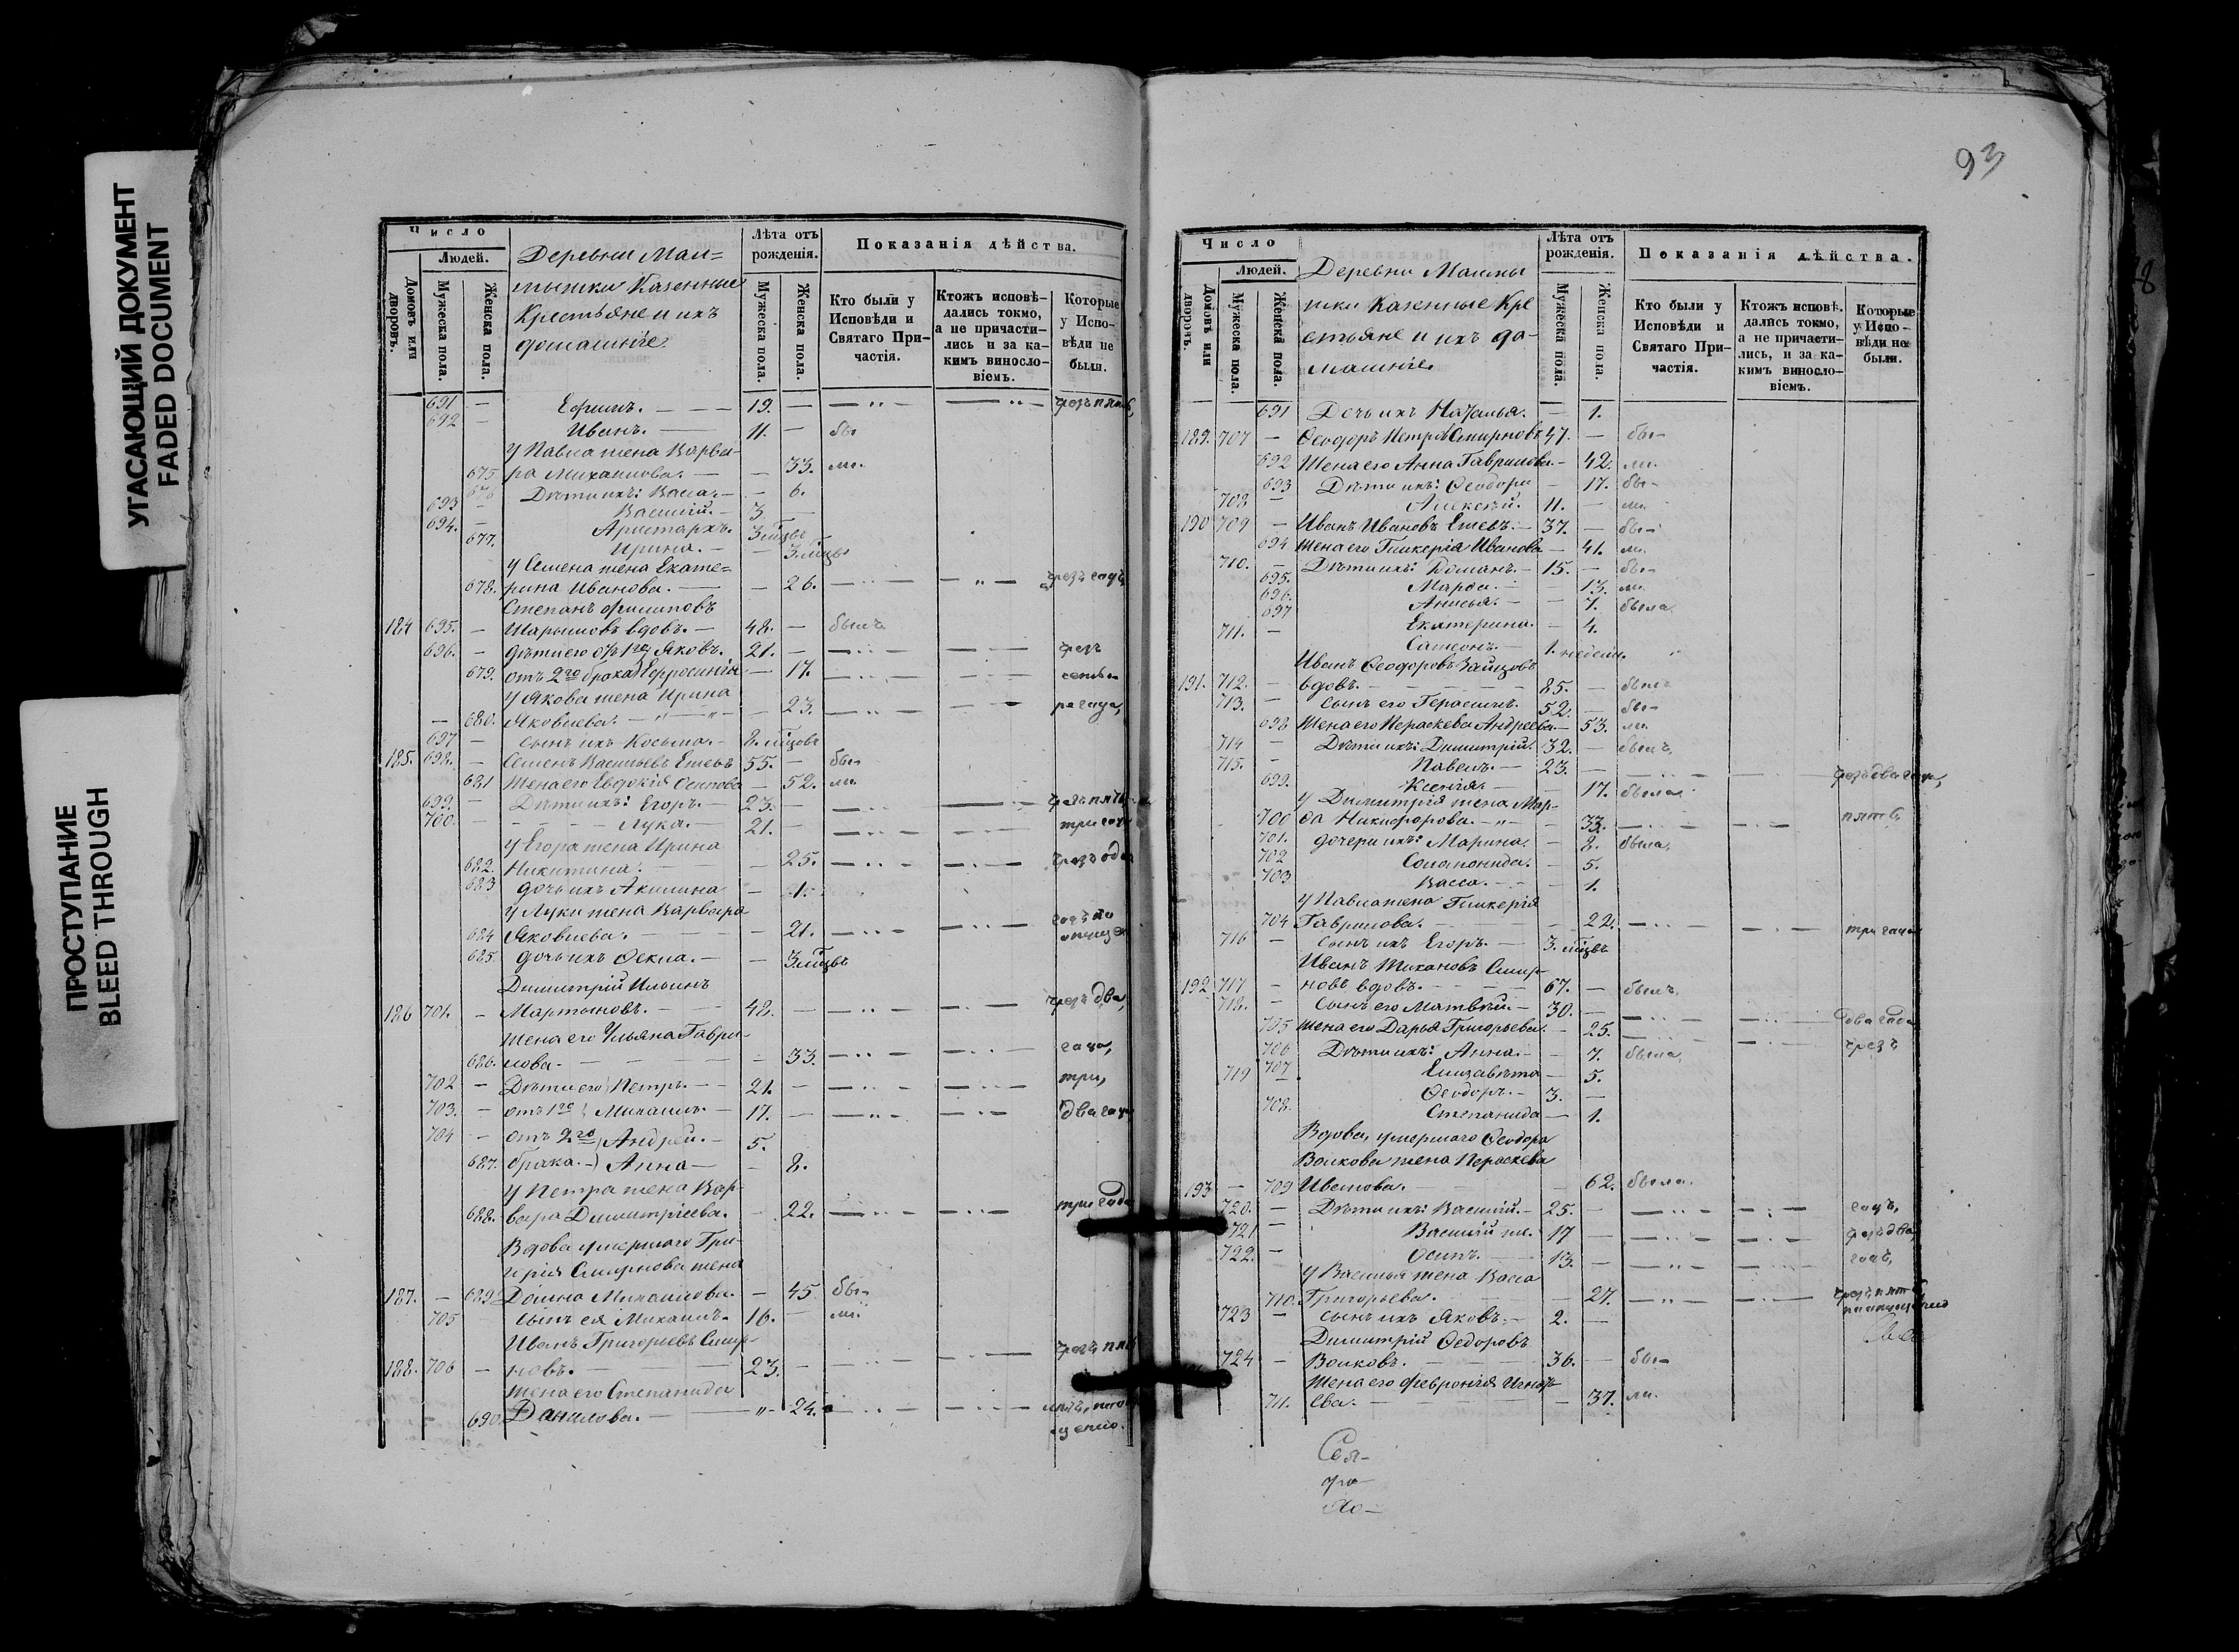 93
УГАСАЮЩИЙ ДОКУМЕНТ
FADED DOCUMENT
ПРОСТУПАНИЕ
BLEED THROUGH
Число
Людей.
Домовъ или дворовъ.
Мужеска пола.
Женска пола.
Деревни Мал=
мышки Казенные
Крестьяне и ихъ
домашніе.
Лѣта отъ рожденія.
Мужеска пола.
Женска пола.
Показанія дѣйства.
Кто были у Исповѣди и Святаго Причастія.
Ктожъ исповѣдались токмо, а не причастились и за какимъ винословіемъ.
Которые у Исповѣди не были.
691 — Ефимъ. — 19. —
692 — Иванъ. — 11. — бы
у Павла жена Варва-
675 ра Михаилова. — — 33. ли.
676 Дѣти ихъ: Васса. — — 6.
693 — Василій. — 3 —
694. — Аристархъ. 3 мѣцы
677. Ирина. — — 3 мѣцы
у Семена жена Екате=
678. рина Иванова. — — 26. чрезъ годъ
Степанъ Филиповъ
184 695. — Шарыповъ вдовъ. — 48. — былъ
696. — дѣти его отъ 1го Яковъ. — 21. — чрезъ
679. отъ 2го брака Ефросинія — 17.
у Якова жена Ирина
— 680. Яковлева. — — 23.
697 — сынъ ихъ Косьма. — 8. мѣцовъ
185. 698. — Семенъ Васильевъ Ешевъ 55. — бы
681 Жена его Евдокія Осипова — 52. ли
699. — Дѣти ихъ: Егоръ. — 23. —
700. — Лука. — 21. — три года
у Егора жена Ирина
682. Никитина. — — 25.
683 дочь ихъ Акилина — 1.
у Луки жена Варвара
684 Яковлева. — — 21.
685. дочь ихъ Фекла. — — 3 мѣцъ
Димитрій Ильинъ
186 701. — Мартыновъ. — 48. — чрезъ два,
Жена его Ульяна Гаври-
686. лова. — — 33. года,
702 — Дѣти его Петръ. — 21. — три,
703. — отъ 1го Михаилъ. — 17. — два года
704 — отъ 2го Андрей. — 5.
687. брака. Анна — — 8.
у Петра жена Вар-
688. вара Димитріева. — 22. три года
Вдова умершаго Гри-
горія Смирнова жена
187. — 689 Домна Михаилова. — 45 бы-
705 сынъ ея Михаилъ. 16. — ли
Иванъ Григорьевъ Смир-
188. 706 — новъ. — 23. —
Жена его Степанида
690. Данилова. — 24.
Число
Людей.
Домовъ или дворовъ.
Мужеска пола.
Женска пола.
Деревни Малмы
шки Казенные Кре
стьяне и ихъ до-
машніе.
Лѣта отъ рожденія.
Мужеска пола.
Женска пола.
Показанія дѣйства.
Кто были у Исповѣди и Святаго Причастія.
Ктожъ исповѣдались токмо, а не причастились, и за какимъ винословіемъ.
Которые у Исповѣди не были.
691 Дочь ихъ Наталья. — 1.
189. 707 — Ѳеодоръ Петровъ Смирновъ 47. — бы-
692 Жена его Анна Гаврилова — 42. ли.
693 Дѣти ихъ: Ѳеодора — 17. бы-
708 — Алексѣй. 11. — ли.
190 709 — Иванъ Ивановъ Ешевъ. — 37. — бы-
694 Жена его Гликерія Иванова — 41. ли.
710. — Дѣти ихъ: Романъ. — 15. — бы-
695. Марѳа. — 13. ли.
696. Анисья. — 7. была
697 Екатерина. — 4.
711. — Сампсонъ. — 1. недели.
Иванъ Ѳеодоровъ Зайцовъ
191. 712. — вдовъ. — 85. — былъ
713. — сынъ его Герасимъ. 52. — бы-
698 Жена его Параскева Андреева — 53. ли.
714 — Дѣти ихъ: Димитрій. 32. — былъ
715. — Павелъ. — 23. — чрезъ два года,
699. Ксенія. — 17. была
у Димитрія жена Мар-
700 ѳа Никифорова. — 33. пять
701. дочери ихъ: Марина. — 8. была.
702 Соломонида. — 5.
703 Васса. — 1.
у Павла жена Гликерія
704 Гаврилова. — 22. три года
716 — сынъ ихъ Егоръ. — 3. мѣцвъ
Иванъ Тихановъ Смир-
192 717 — новъ вдовъ. — 67. — былъ
718. — сынъ его Матвѣй. — 30. — два года
705 Жена его Дарья Григорьева. — 25. чрезъ
706 Дѣти ихъ: Анна. — 7. была
707 Елизавѣта — 5.
719 — Ѳеодоръ. — 3. —
708. Степанида — 1.
Вдова, умершаго Ѳеодора
Волкова жена Параскева
193 — 709 Иванова. — 62. была.
720. — Дѣти ихъ: Василій. — 25. — годъ,
721 — Василій же. 17 — чрезъ два,
722. — Осипъ. 13. — годъ,
у Василья жена Васса
710. Григорьева. — 27.
723 — сынъ ихъ Яковъ. — 2. —
Димитрій Ѳедоровъ
724 — Волковъ. — 36. — бы-
Жена его Февронія Игнать
711. ева. — 37. ли.